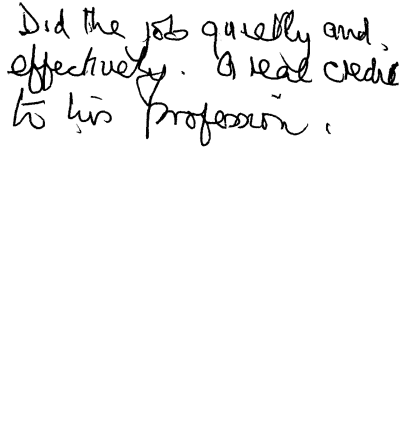 Did the job quietly and,
effectively. A real credit
to his profession.